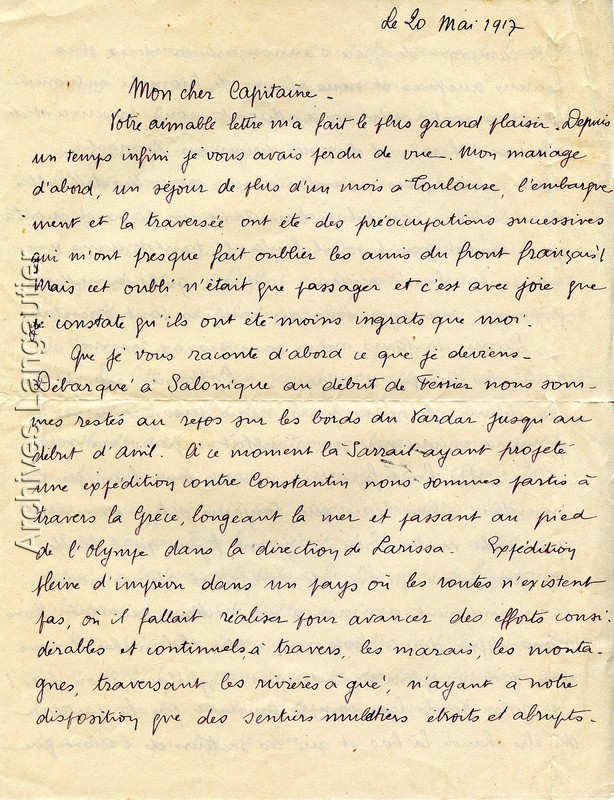 Le 20 Mai 1917
Mon cher Capitaine -
Votre aimable lettre m'a fait le plus grand plaisir. Depuis
un temps infini je vous avais perdu de vue. Mon mariage
d'abord, un séjour de plus d'un mois à Toulouse, l'embarque
ment et la traversée ont été des préoccupations successives
qui m'ont presque fait oublier les amis du front français!
Mais cet oubli n'était que passager et c'est avec joie que
je constate qu'ils ont été moins ingrats que moi.
Que je vous raconte d'abord ce que je deviens -
Débarqué à Salonique au début de Février nous som-
mes restés au repos sur les bords du Vardar jusqu'au
début d'Avril. À ce moment là Sarrail ayant projeté
une expédition contre Constantin nous sommes partis à
travers la Grèce, longeant la mer et passant au pied
de l'Olympe dans la direction de Larissa. Expédition
pleine d'imprévu dans un pays où les routes n'existent
pas, où il fallait réaliser pour avancer des efforts consi
dérables et continuels, à travers, les marais, les monta-
gnes, traversant les rivières à gué, n'ayant à notre
disposition que des sentiers muletiers étroits et abrupts -
Archives Langautier